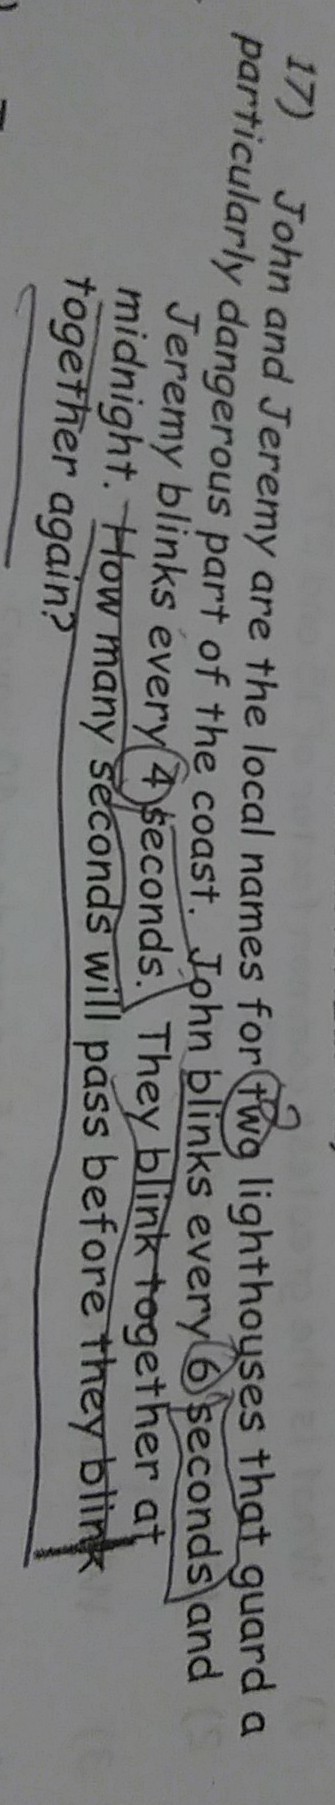 17) John and Jeremy are the local names for two lighthouses that guard a
particularly dangerous part of the coast. John blinks every 6 seconds and
Jeremy blinks every 4 seconds. They blink together at
midnight. How many seconds will pass before they blink
together again?